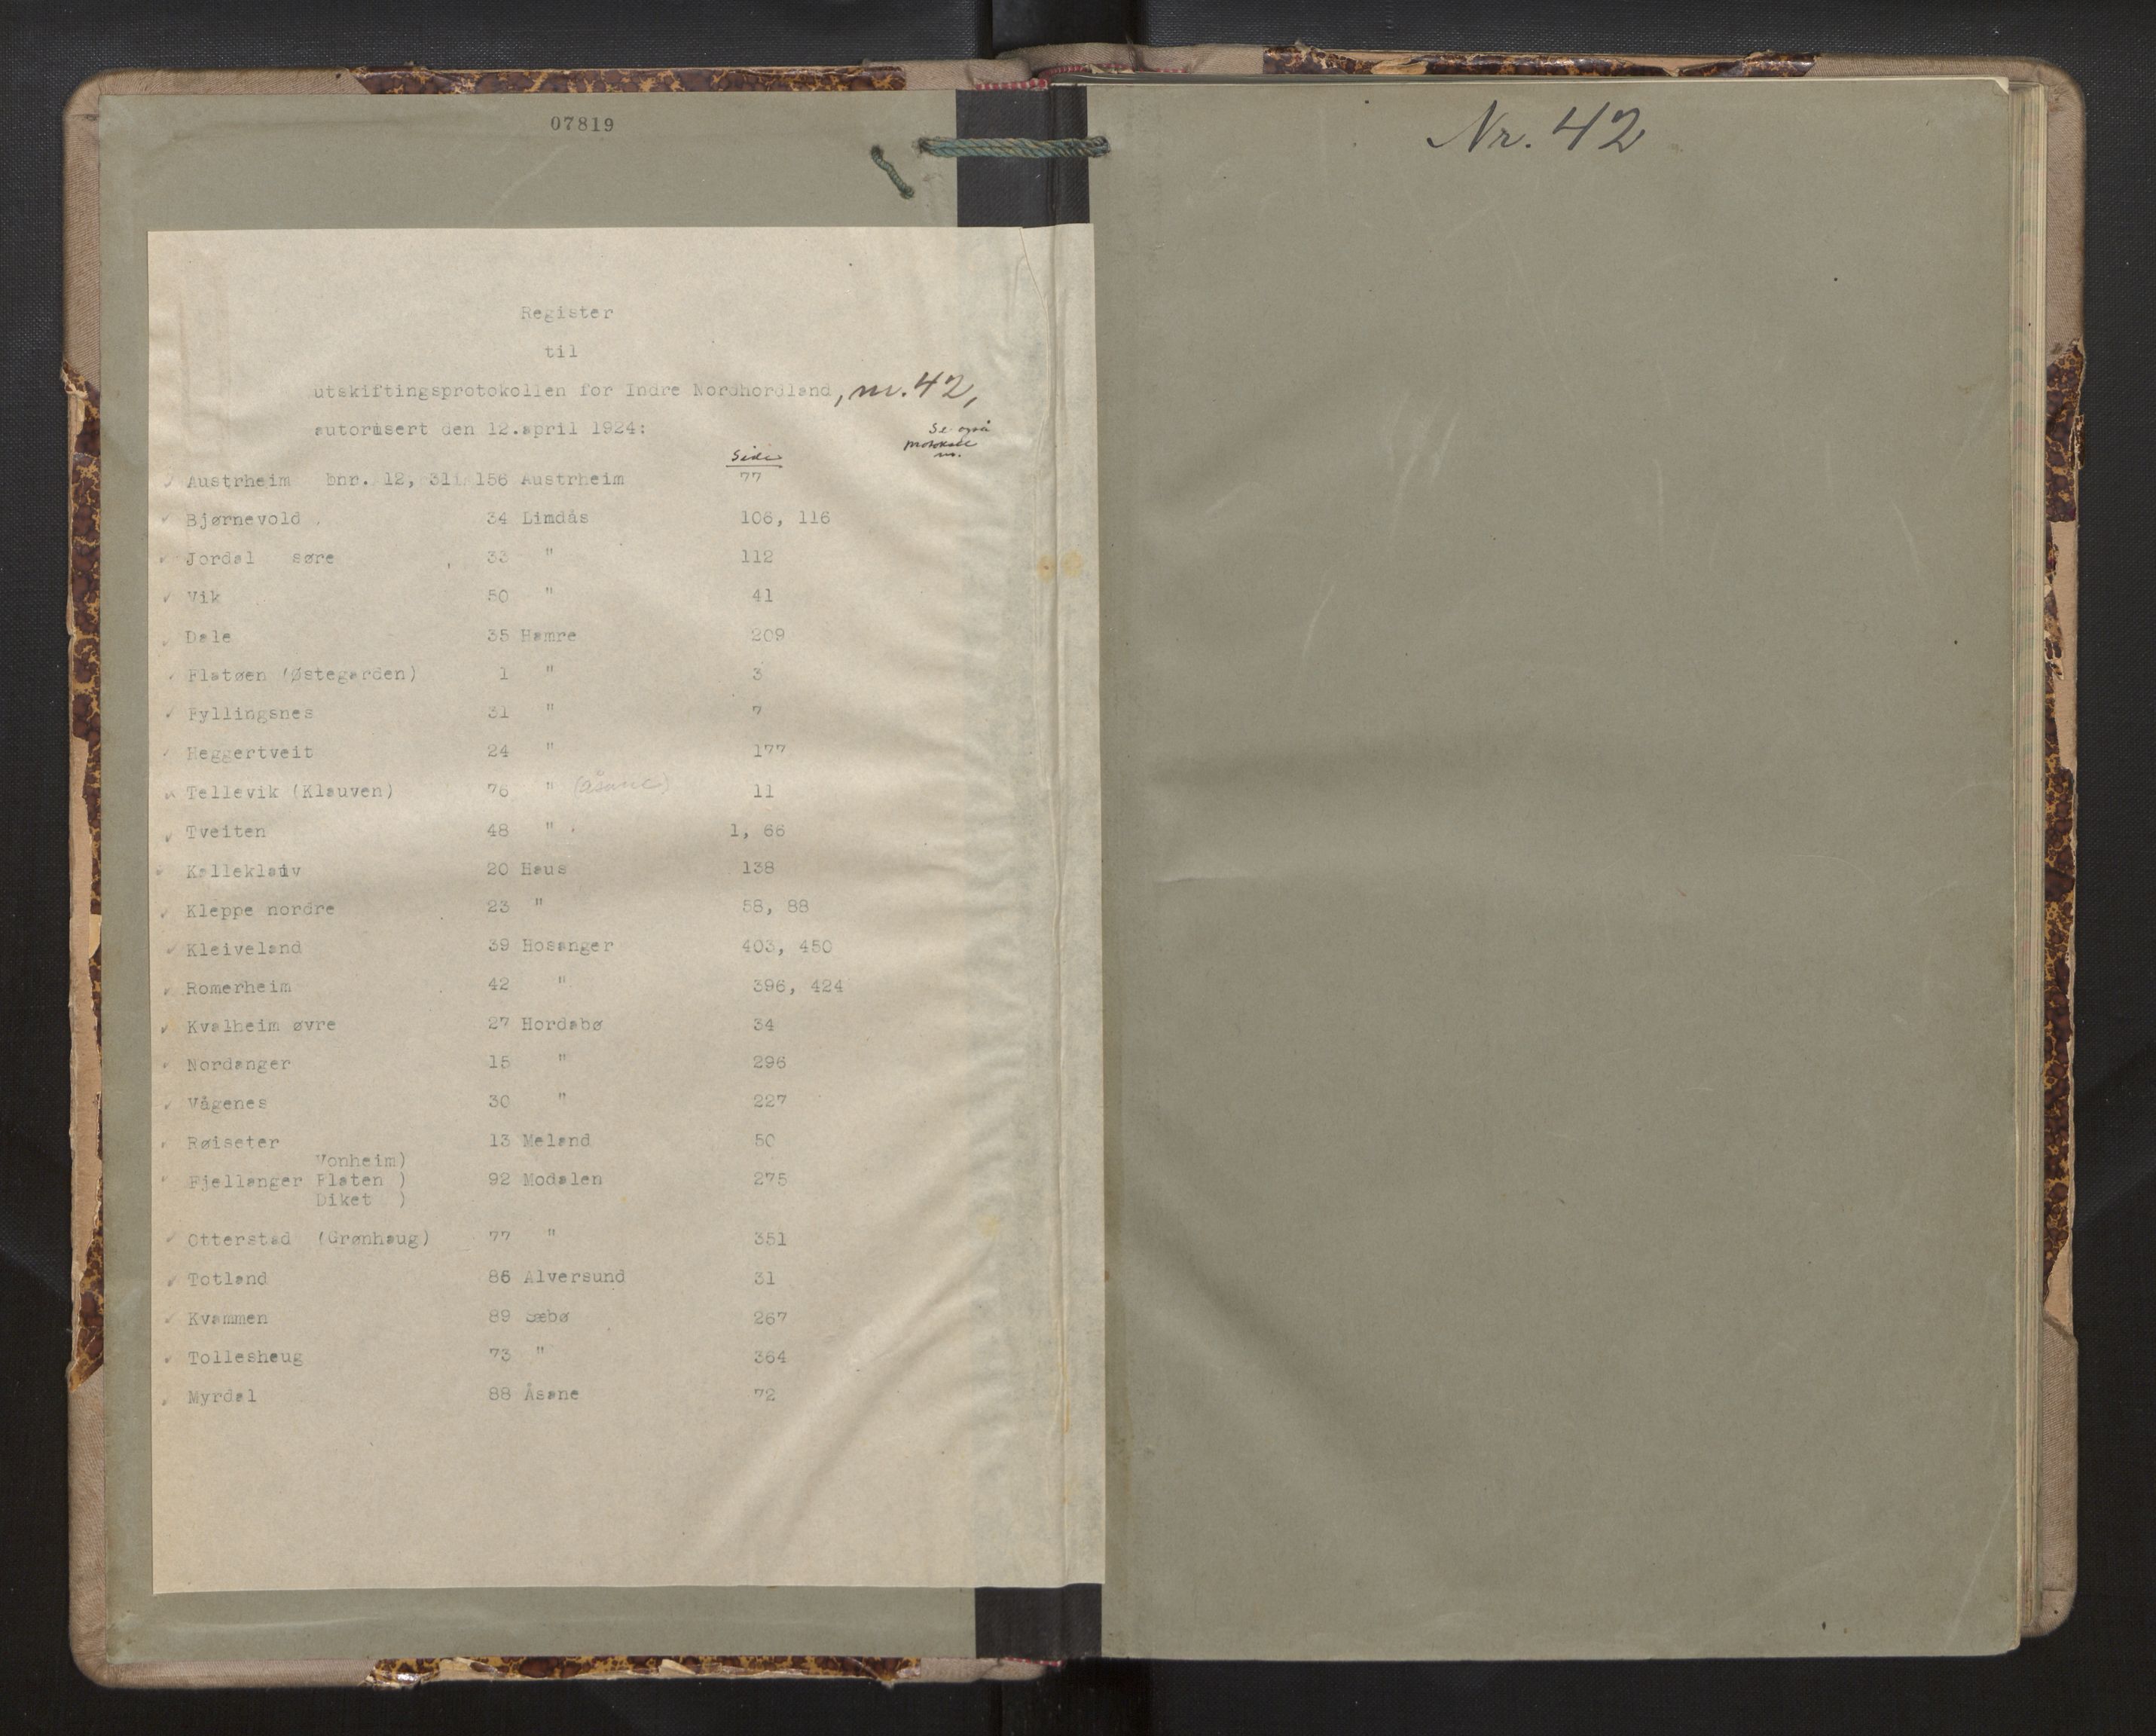 07819
Register
til
utskiftingsprotokollen for Indre Nordhordland, nr. 42,
autorisert den 12.april 1924:
Side
Se også
protokoll
nr.
Austrheim bnr. 12, 31 156 Austrheim 77
Bjørnevold 34 Lindås 106, 116
Jordal søre 33 " 112
Vik 50 " 41
Dale 35 Hamre 209
Flatøen (Østegarden) 1 " 3
Fyllingsnes 31 " 7
Heggertveit 24 " 177
Tellevik (Klauven) 76 " (Åsane) 11
Tveiten 48 " 1, 66
Kalleklaiv 20 Haus 138
Kleppe nordre 23 " 58, 88
Kleiveland 39 Hosanger 403, 450
Romerheim 42 " 396, 424
Kvalheim øvre 27 Hordabø 34
Nordanger 15 " 296
Vågenes 30 " 227
Røiseter 13 Meland 50
Vonheim)
Fjellanger Flaten ) 92 Modalen 275
Diket )
Otterstad (Grønhaug) 77 " 351
Totland 86 Alversund 31
Kvammen 89 Sæbø 267
Tolleshaug 73 " 364
Myrdal 88 Åsane 72
Nr. 42